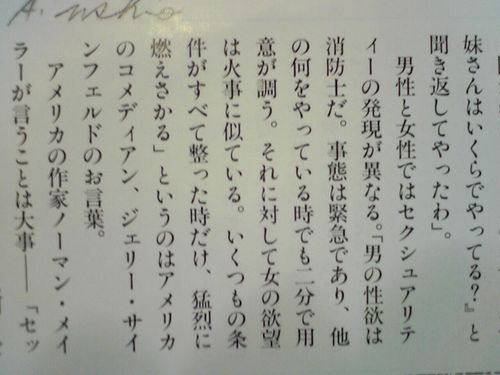 A. ushio
妹さんはいくらでやってる?』と
聞き返してやったわ」。
男性と女性ではセクシュアリテ
ィーの発現が異なる。「男の性欲は
消防士だ。事態は緊急であり、他
の何をやっている時でも二分で用
意が調う。それに対して女の欲望
は火事に似ている。いくつもの条
件がすべて整った時だけ、猛烈に
燃えさかる」というのはアメリカ
のコメディアン、ジェリー・サイ
ンフェルドのお言葉。
アメリカの作家ノーマン・メイ
ラーが言うことは大事――「セッ